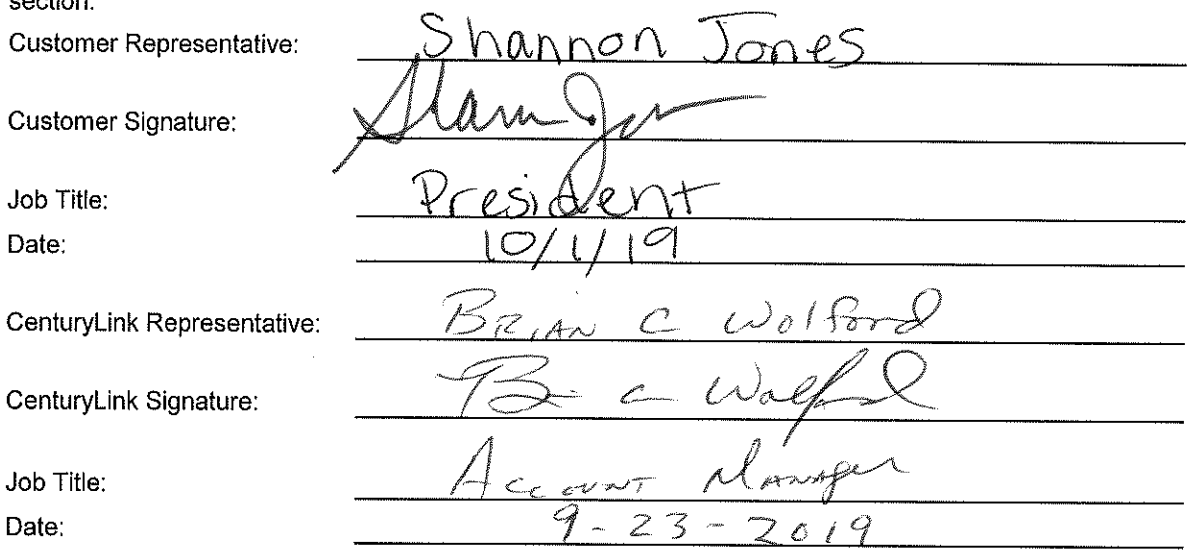 section.
Customer Representative: Shannon Jones
Customer Signature:
Job Title: President
Date: 10/1/19
CenturyLink Representative: BRIAN C Wolford
CenturyLink Signature: Bri C Wolford
Job Title: Account Manager
Date: 9-23-2019